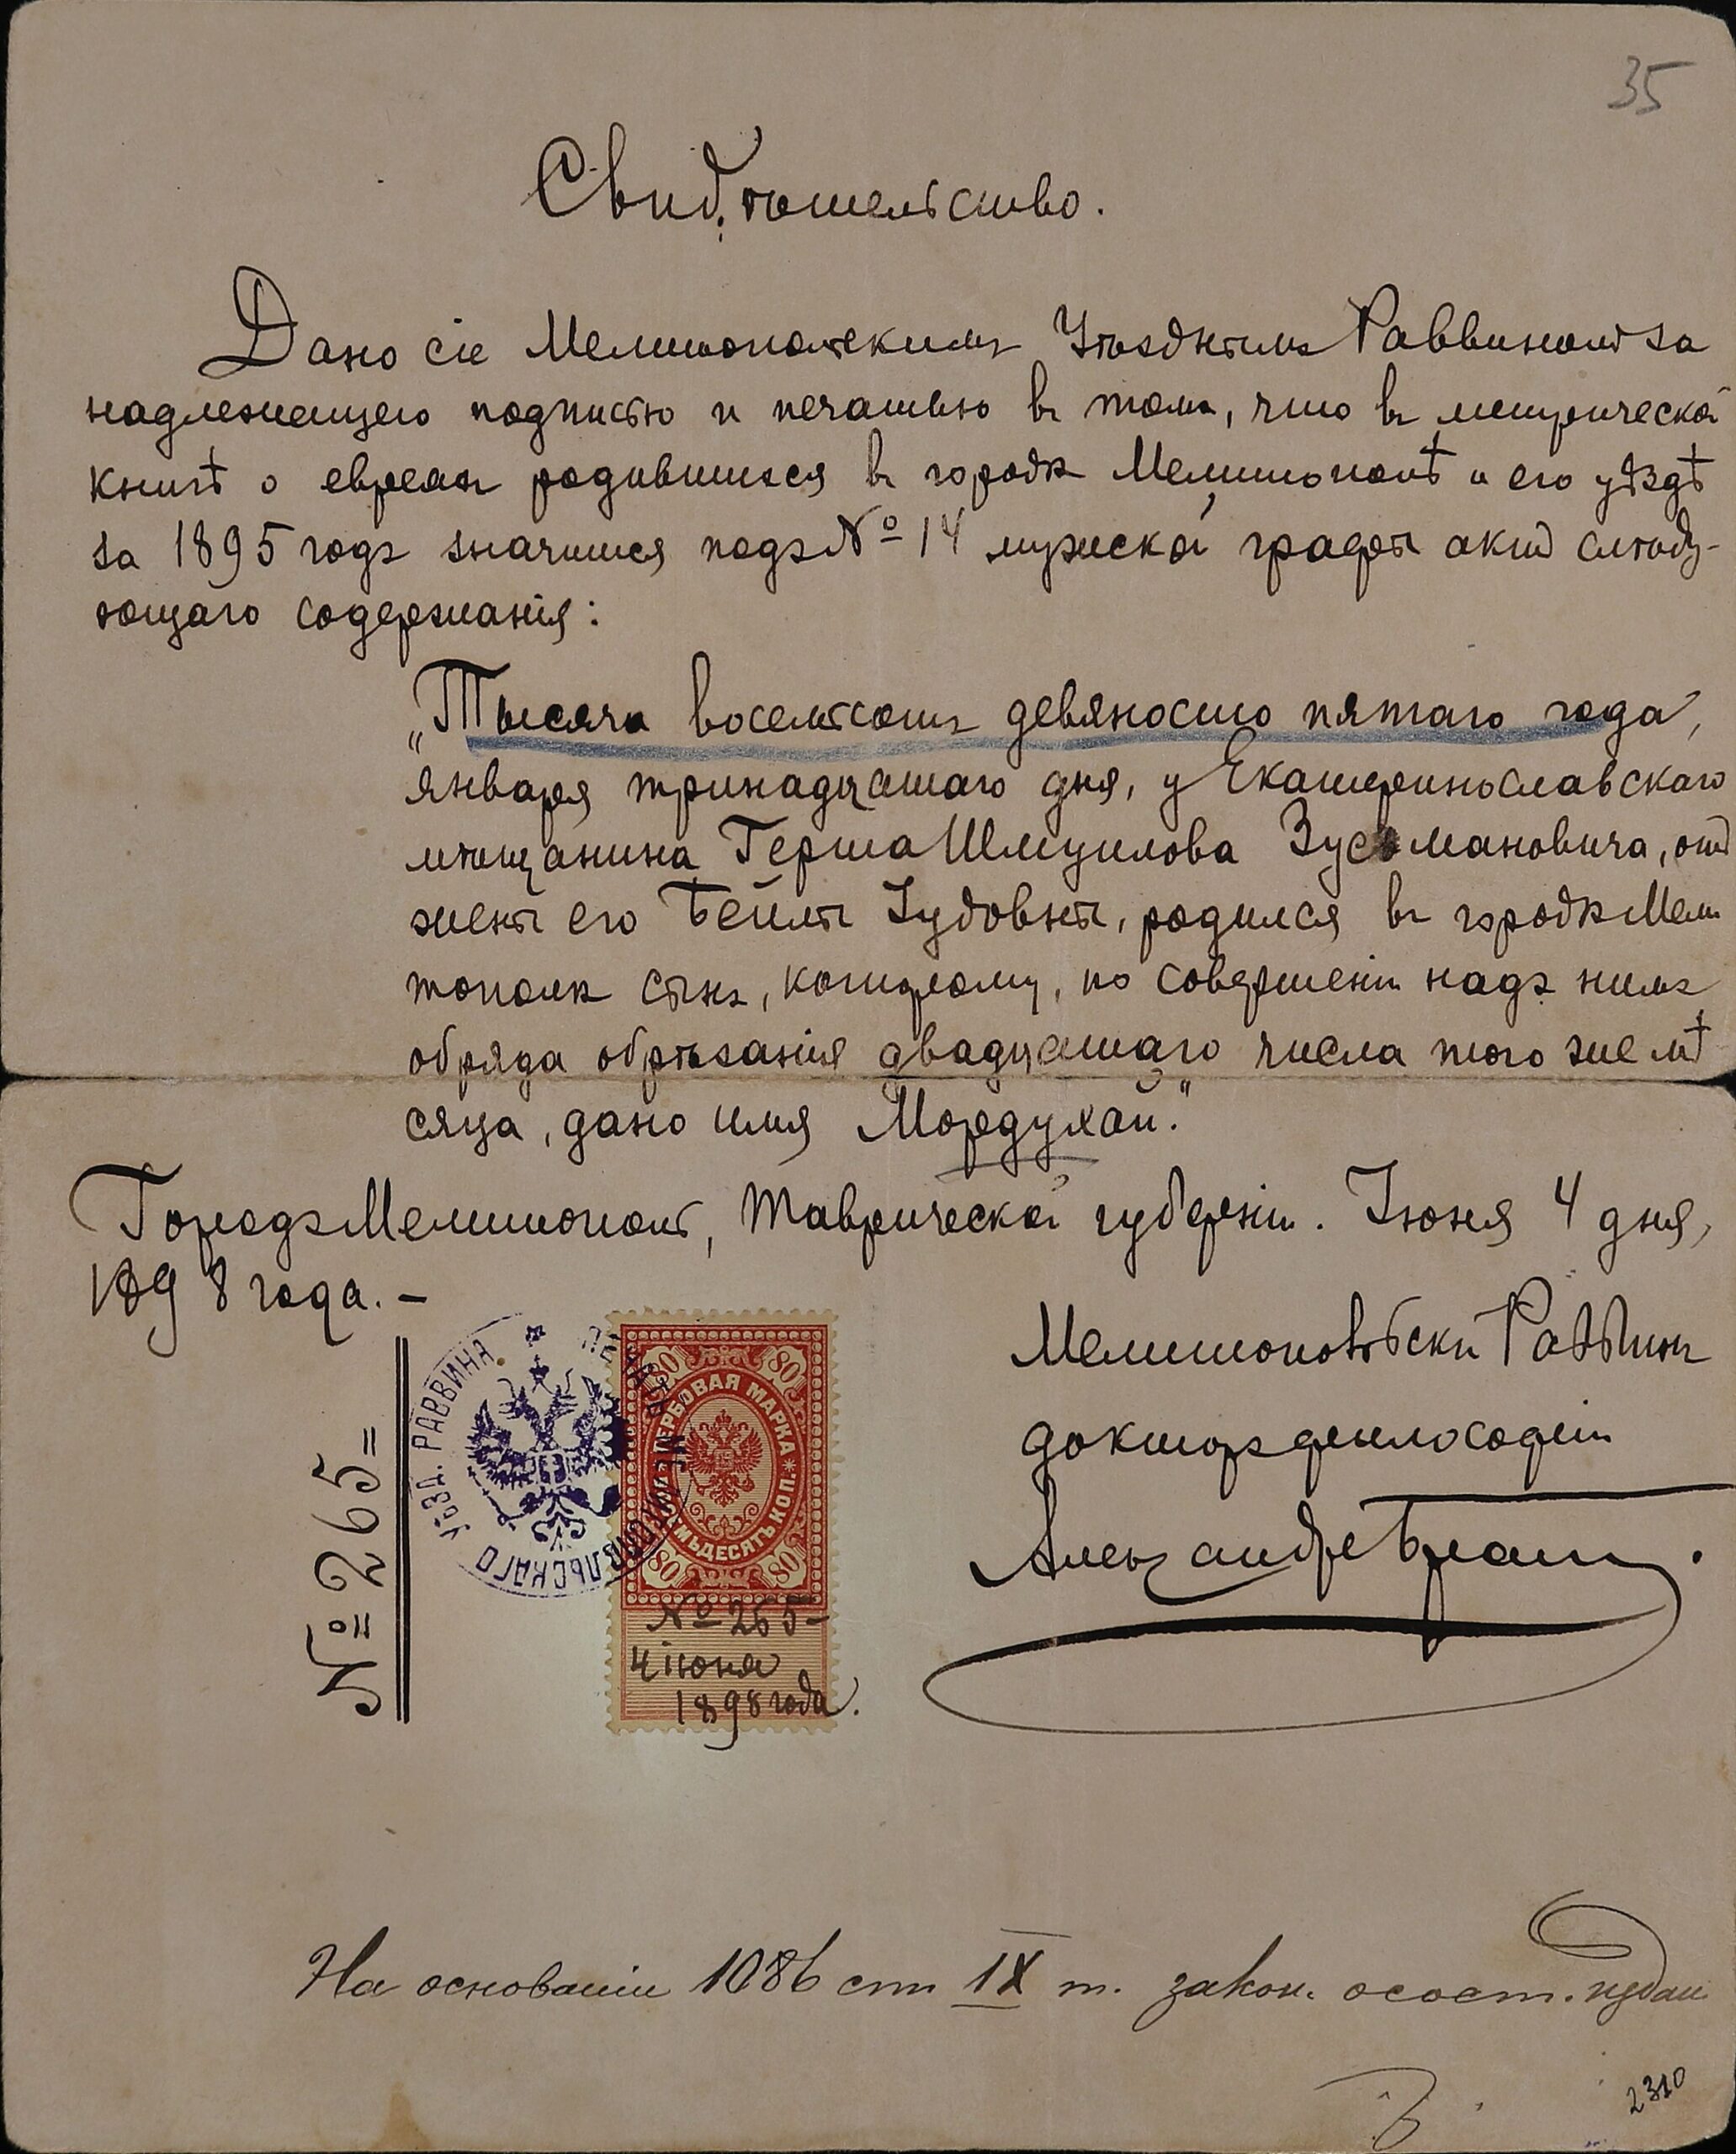 35
Свидѣтельство.
Дано сіе Мелитопольскимъ Уѣзднымъ Раввиномъ за
надлежащею подписью и печатью въ томъ, что въ метрической
книгѣ о евреяхъ родившихся въ городѣ Мелитополѣ и его уѣздѣ
за 1895 годъ значится подъ № 14 мужской графы актъ слѣду-
ющаго содержанія:
„Тысяча восемьсотъ девяносто пятаго года,
января тринадцатаго дня, у Екатеринославскаго
мѣщанина Герша Шмуилова Зусьмановича, отъ
жены его Бейлы Іудовны, родился въ городѣ Мели
тополѣ сынъ, которому, по совершеніи надъ нимъ
обряда обрѣзанія двадцатаго числа того же мѣ
сяца, дано имя Мордухай."
Городъ Мелитополь, Таврической губерніи. Іюня 4 дня,
1898 года. –
Мелитопольскій Раввинъ
докторъ философіи
Александръ Браш.
№ 265=
ПЕЧАТЬ МЕЛИТОПОЛЬСКАГО УѢЗД. РАВВИНА
80 80
ГЕРБОВАЯ МАРКА
ВОСЕМЬДЕСЯТЪ КОП.
80 80
№ 265–
4 іюня
1898 года.
На основаніи 1086 ст IX т. закон. о сост. издан
2310